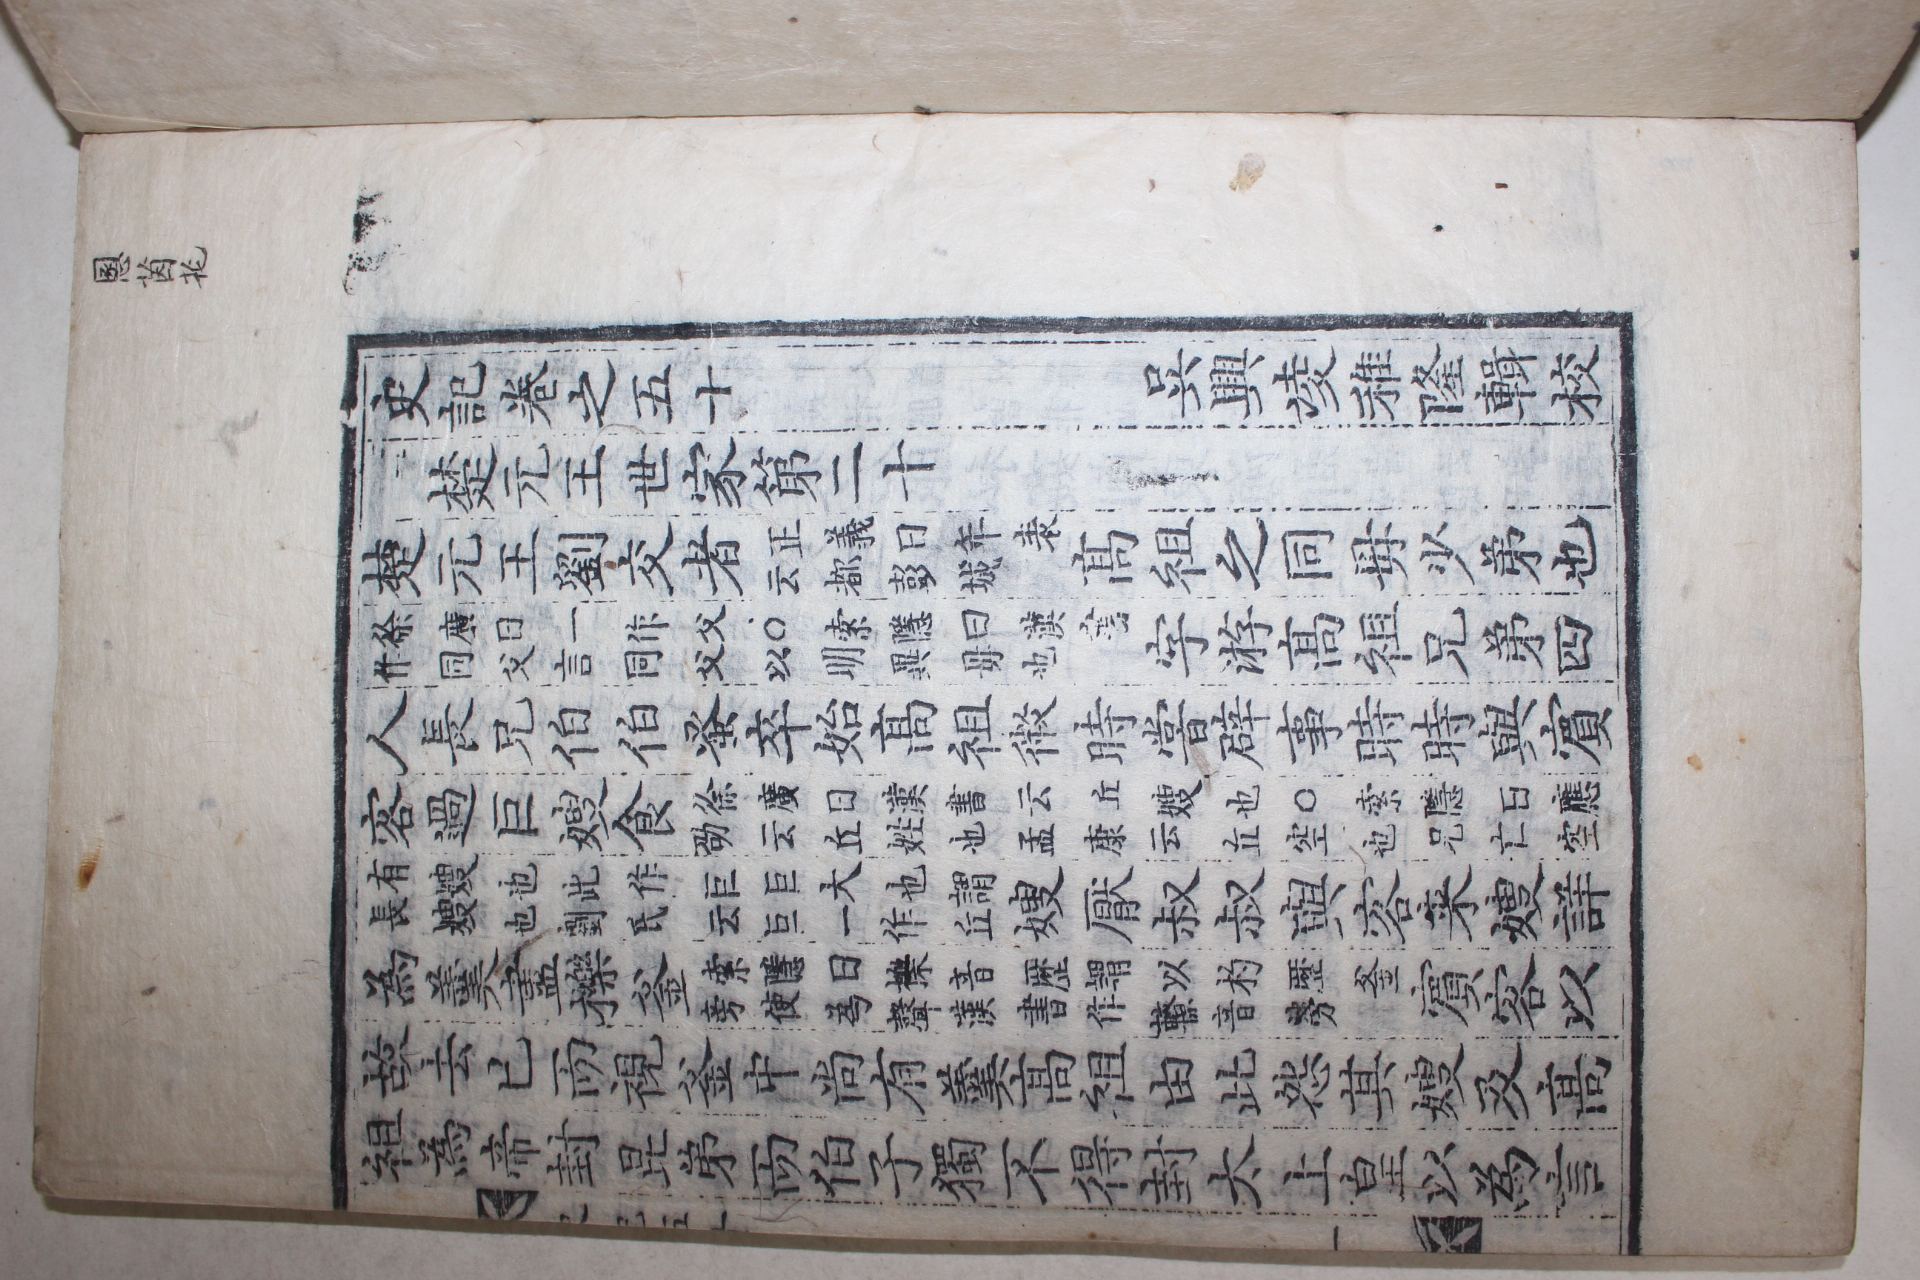 茵花
史記卷之五十 吳興凌稚隆輯校
楚元王世家第二十
楚元王劉交者正義曰年表云都彭城高祖之同毋少弟也
徐廣曰一作父○索隱曰漢書作同父言同父以明異毋也字游高祖兄弟四
人長兄伯伯蚤卒始高祖微時嘗辟事時時與賓
客過巨嫂食徐廣曰漢書云丘嫂也○索隱曰應劭云丘姓也孟康云丘空也兄亡空
有嫂也此作巨巨大也謂長嫂也劉氏云巨一作丘嫂厭叔叔與客来嫂詳
為羹盡擽釜索隱曰擽音歷謂以杓歷釜旁使為聲漢書作轑音勞賓客以
故去已而視釜中尚有羹高祖由此怨其嫂及高
祖為帝封昆弟而伯子獨不得封太上皇以為言